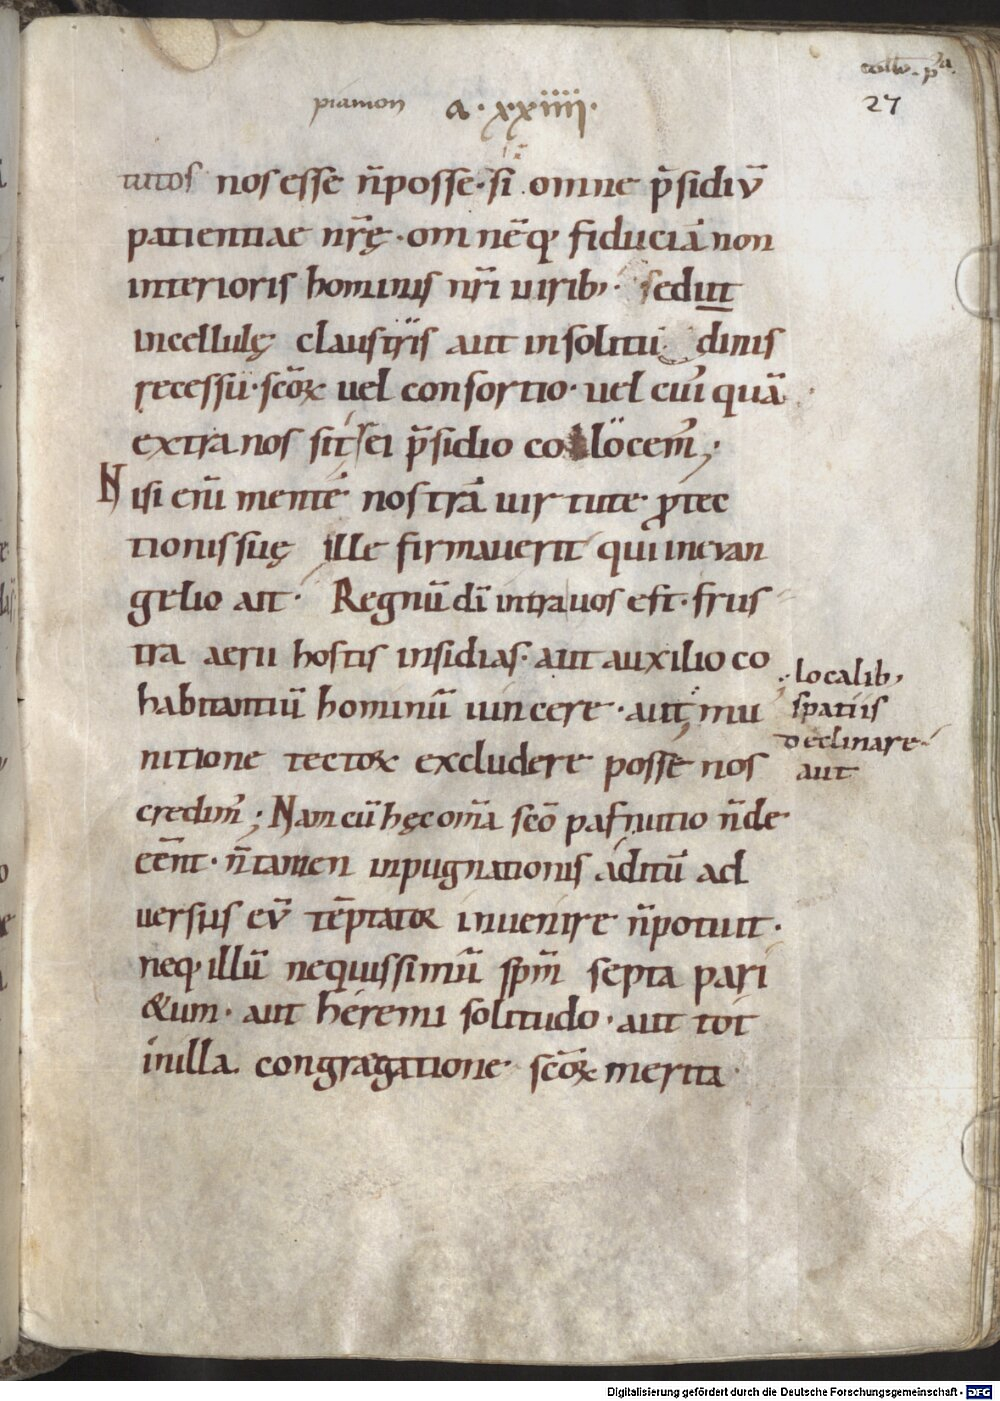 collō. pᵃ.
27
piamon a. xxiiii.
tutos nos esse n̄posse. si omne p̄sidiū
patientiae nr̄ę. om nēq; fiduciā non
interioris hominis nr̄i uirib; sed ut
incellulę claustris aut insolitu dinis
recessu. scōꝝ uel consortio. uel cui quā
extra nos sit rei p̄sidio collocem̄;
Nisi eni mentē nostrā uirtute ꝓtec
tionis suę ille firmauerit qui inevan
gelio ait. Regnū dī intra uos est. frus
tra aerii hostis insidias. aut auxilio co
habitantiū hominū uincere. aut mu
localib;
spatiis
declinare
aut
nitione tectoꝝ excludere posse nos
credim̄; Nam cū hęc omīa scō pafnutio n̄de
eēnt. n̄ tamen inpugnationis aditū ad
uersus eū tēptator inuenire n̄potuit.
neq; illū nequissimū sp̄m septa pari
&um. aut heremi solitudo. aut tot
in illa congregatione scōꝝ merita
Digitalisierung gefördert durch die Deutsche Forschungsgemeinschaft - DFG